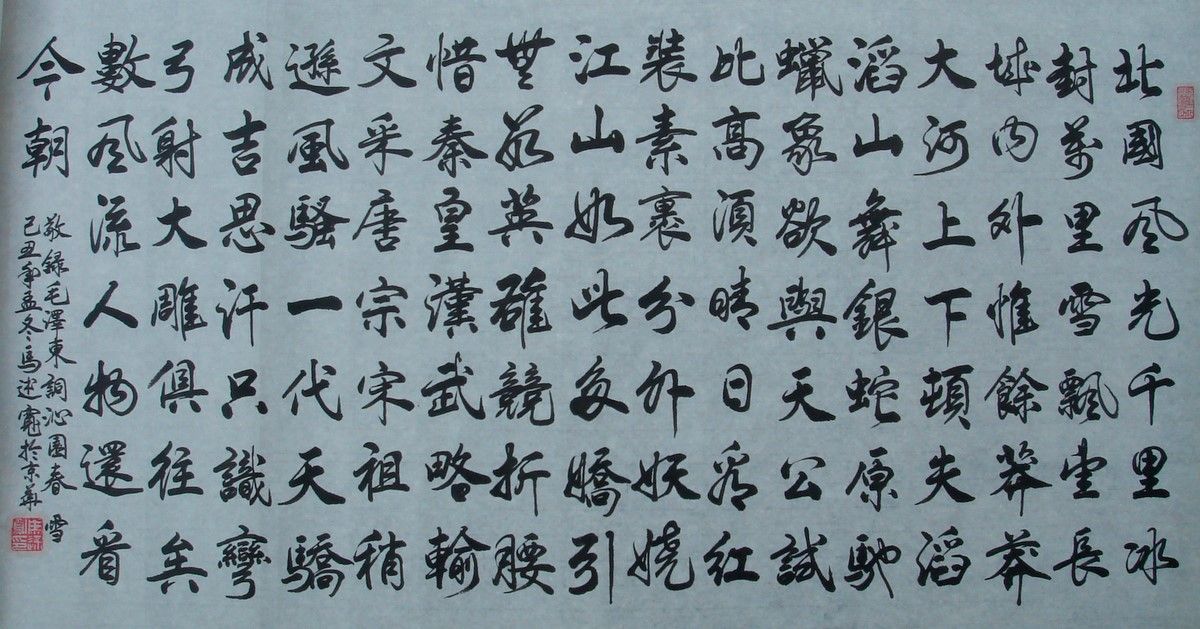 北國風光千里冰
封萬里雪飄望長
城內外惟餘莽莽
大河上下頓失滔
滔山舞銀蛇原馳
蠟象欲與天公試
比高須晴日看紅
裝素裹分外妖嬈
江山如此多嬌引
無數英雄競折腰
惜秦皇漢武略輸
文采唐宗宋祖稍
遜風騷一代天驕
成吉思汗只識彎
弓射大雕俱往矣
數風流人物還看
今朝
敬録毛澤東詞沁園春 雪
己丑年孟冬馬述於京華